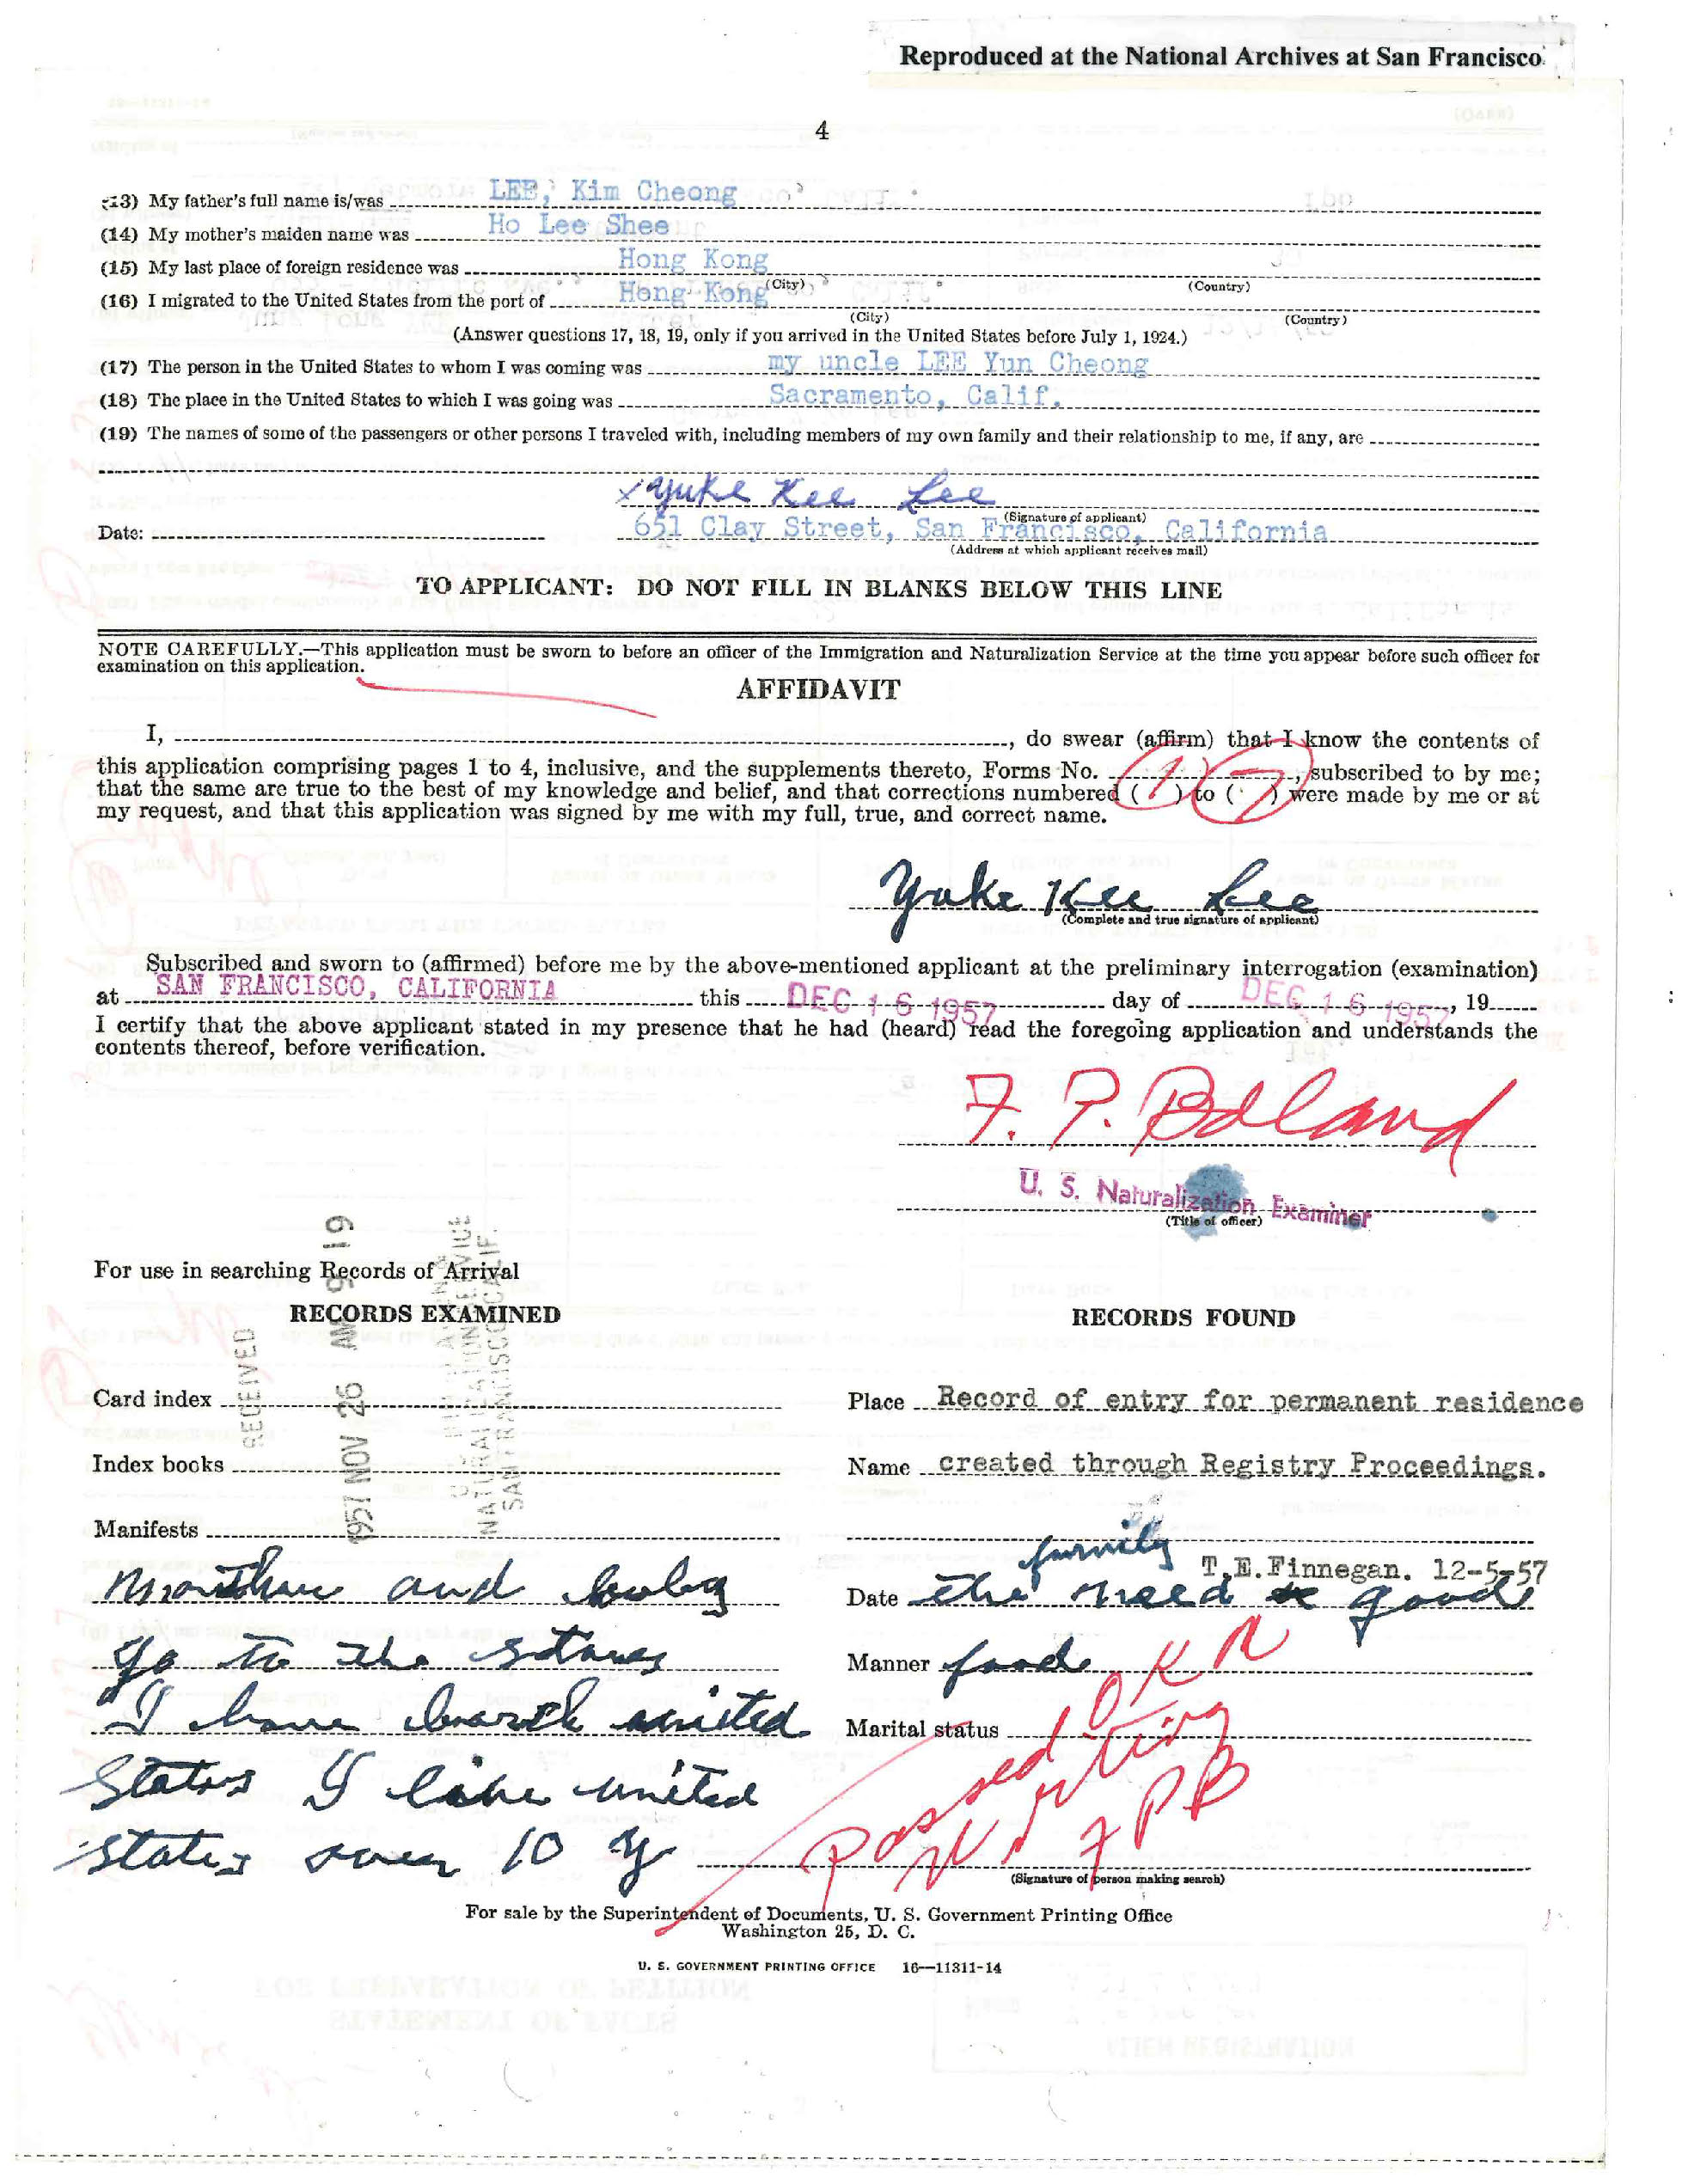 Reproduced at the National Archives at San Francisco
4
(13) My father's full name is/was LEE, Kim Cheong
(14) My mother's maiden name was Ho Lee Shee
(15) My last place of foreign residence was Hong Kong
(City) (Country)
(16) I migrated to the United States from the port of Hong Kong
(City) (Country)
(Answer questions 17, 18, 19, only if you arrived in the United States before July 1, 1924.)
(17) The person in the United States to whom I was coming was my uncle LEE Yun Cheong
(18) The place in the United States to which I was going was Sacramento, Calif.
(19) The names of some of the passengers or other persons I traveled with, including members of my own family and their relationship to me, if any, are
x Yuke Kee Lee
(Signature of applicant)
Date: 651 Clay Street, San Francisco, California
(Address at which applicant receives mail)
TO APPLICANT: DO NOT FILL IN BLANKS BELOW THIS LINE
NOTE CAREFULLY.—This application must be sworn to before an officer of the Immigration and Naturalization Service at the time you appear before such officer for
examination on this application.
AFFIDAVIT
I, , do swear (affirm) that I know the contents of
this application comprising pages 1 to 4, inclusive, and the supplements thereto, Forms No. , subscribed to by me;
that the same are true to the best of my knowledge and belief, and that corrections numbered (1) to (7) were made by me or at
my request, and that this application was signed by me with my full, true, and correct name.
Yuke Kee Lee
(Complete and true signature of applicant)
Subscribed and sworn to (affirmed) before me by the above-mentioned applicant at the preliminary interrogation (examination)
at SAN FRANCISCO, CALIFORNIA this DEC 16 1957 day of DEC 16 1957, 19
I certify that the above applicant stated in my presence that he had (heard) read the foregoing application and understands the
contents thereof, before verification.
F. P. Boland
U. S. Naturalization Examiner
(Title of officer)
For use in searching Records of Arrival
RECORDS EXAMINED
RECORDS FOUND
RECEIVED
1957 NOV 26 AM 9 19
NATURALIZATION SERVICE
SAN FRANCISCO CALIF.
Card index
Place Record of entry for permanent residence
Index books
Name created through Registry Proceedings.
Manifests
family
T.E.Finnegan. 12-5-57
and baby
Date the need good
go to the stores
Manner food
I have united
Marital status
States I like united
states over 10 y
OK R
Passed
Writing
FPB
(Signature of person making search)
For sale by the Superintendent of Documents, U. S. Government Printing Office
Washington 25, D. C.
U. S. GOVERNMENT PRINTING OFFICE 16—11311-14